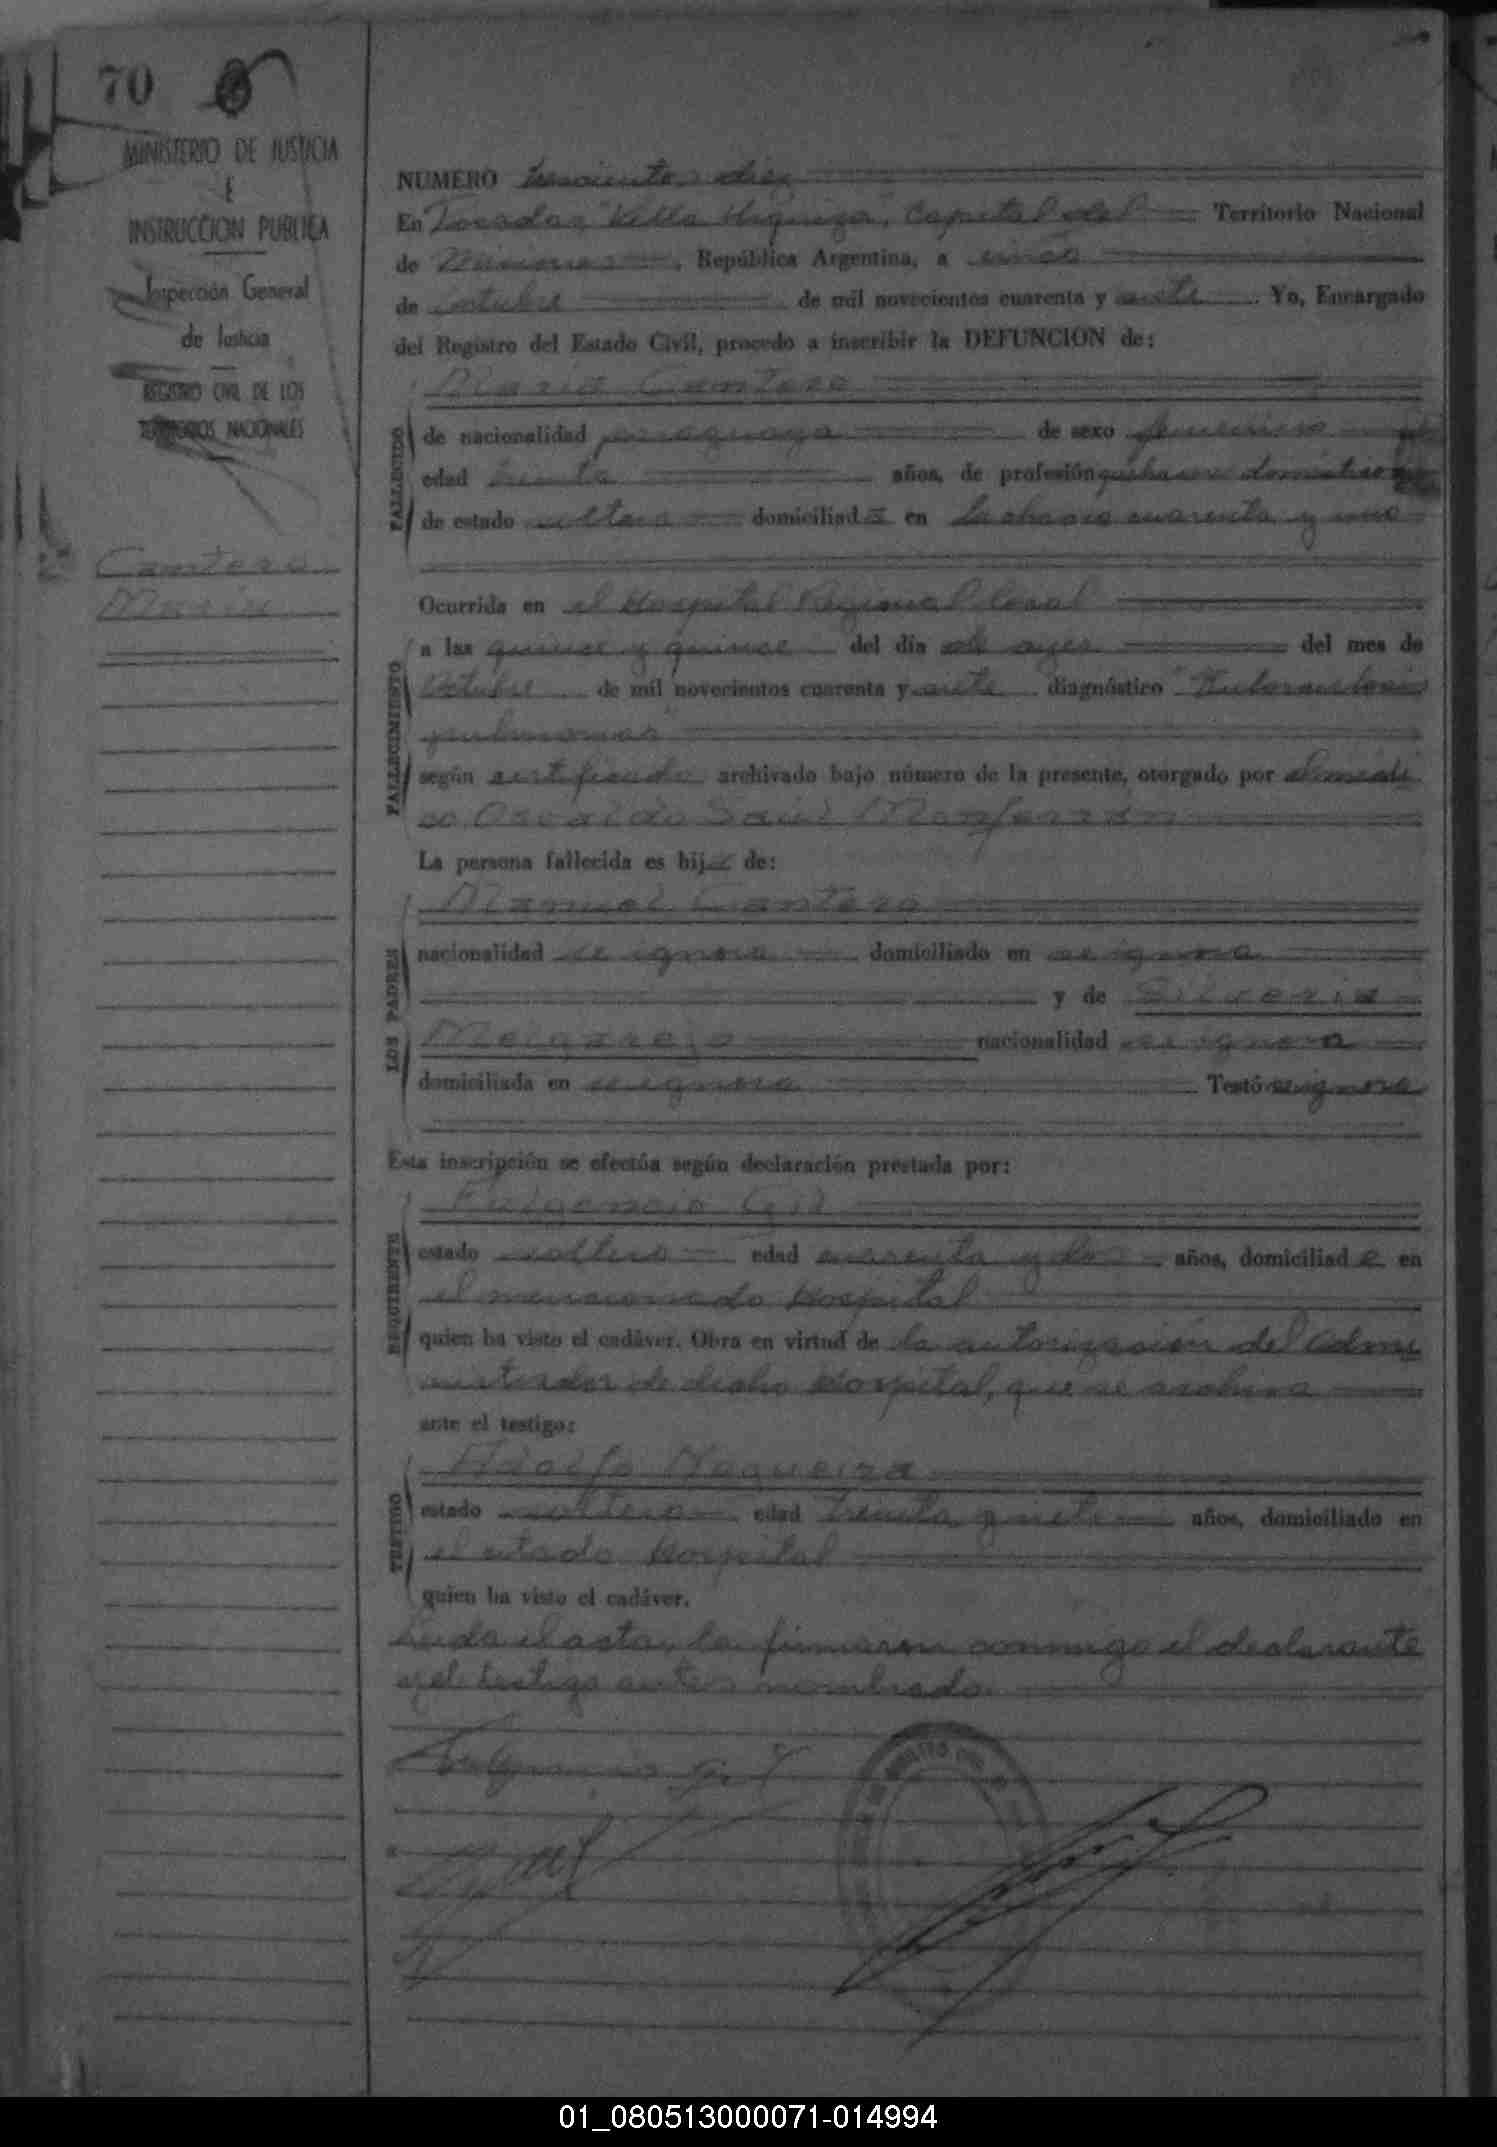 70
MINISTERIO DE JUSTICIA
E
INSTRUCCION PUBLICA
Inspección General
de Justicia
REGISTRO CIVIL DE LOS
TERRITORIOS NACIONALES
Cantero
María
NUMERO trescientos diez
En Posadas, "Villa Urquiza", Capital del Territorio Nacional
de Misiones, República Argentina, a cinco
de octubre de mil novecientos cuarenta y siete. Yo, Encargado
del Registro del Estado Civil, procedo a inscribir la DEFUNCION de:
María Cantero
FALLECIDO
de nacionalidad paraguaya de sexo femenino
edad treinta años, de profesión quehaceres domésticos
de estado soltera domiciliada en la chacra cuarenta y uno
Ocurrida en el Hospital Regional local
FALLECIMIENTO
a las quince y quince del día de ayer del mes de
Octubre de mil novecientos cuarenta y siete diagnóstico "Tuberculosis
pulmonar"
según certificado archivado bajo número de la presente, otorgado por el médi
co Osvaldo Saúl Monferrán
La persona fallecida es hija de:
LOS PADRES
Manuel Cantero
nacionalidad se ignora domiciliado en se ignora
y de Silveria
Melgarejo nacionalidad se ignora
domiciliada en se ignora Testó: se ignora
Esta inscripción se efectúa según declaración prestada por:
REQUIRENTE
Fulgencio Gil
estado soltero edad cuarenta y dos años, domiciliado en
el mencionado Hospital
quien ha visto el cadáver. Obra en virtud de la autorización del Admi
nistrador de dicho Hospital, que se archiva
ante el testigo:
TESTIGO
Adolfo Nogueira
estado soltero edad treinta y siete años, domiciliado en
el citado Hospital
quien ha visto el cadáver.
Leída el acta, la firmaron conmigo el declarante
y el testigo antes nombrado.
Fulgencio Gil
01_080513000071-014994